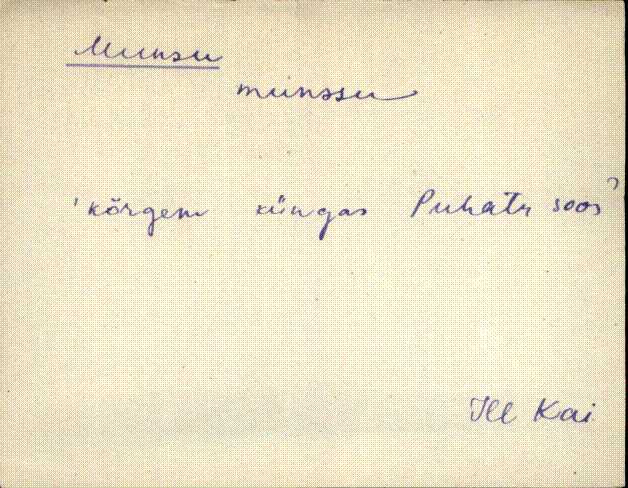 Munsu
munssu
'kõrgem küngas Puhatu soos'
Ill Kai